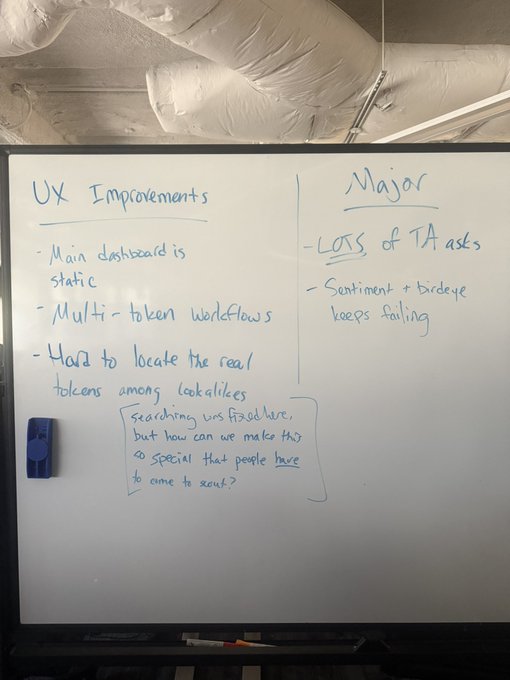 UX Improvements
- Main dashboard is
static
- Multi-token workflows
- Hard to locate the real
tokens among lookalikes
[searching was fixed here,
but how can we make this
so special that people have
to come to scout?]
Major
- LOTS of TA asks
- Sentiment + birdeye
keeps failing